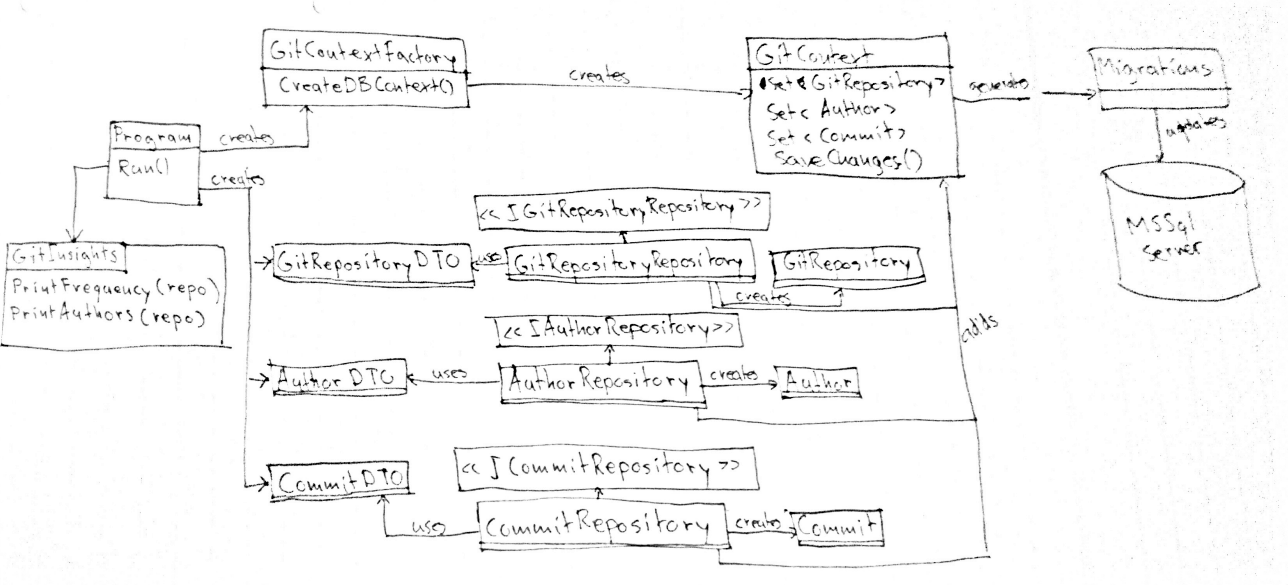 GitContextFactory
CreateDBContext()
creates
GitContext
Set<GitRepository>
Set<Author>
Set<Commit>
SaveChanges()
generates
Migrations
updates
MSSql
Server
Program
Run()
creates
creates
GitInsights
PrintFrequency(repo)
PrintAuthors(repo)
<<IGitRepositoryRepository>>
GitRepositoryDTO
uses
GitRepositoryRepository
GitRepository
creates
adds
<<IAuthorRepository>>
AuthorDTO
uses
AuthorRepository
creates
Author
<<ICommitRepository>>
CommitDTO
uses
CommitRepository
creates
Commit